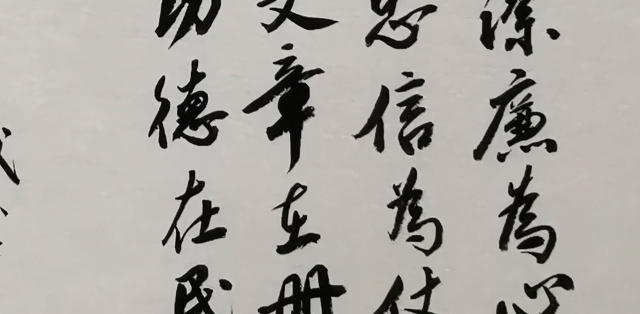 潔廉為心
忠信為仗
文章在册
功德在民